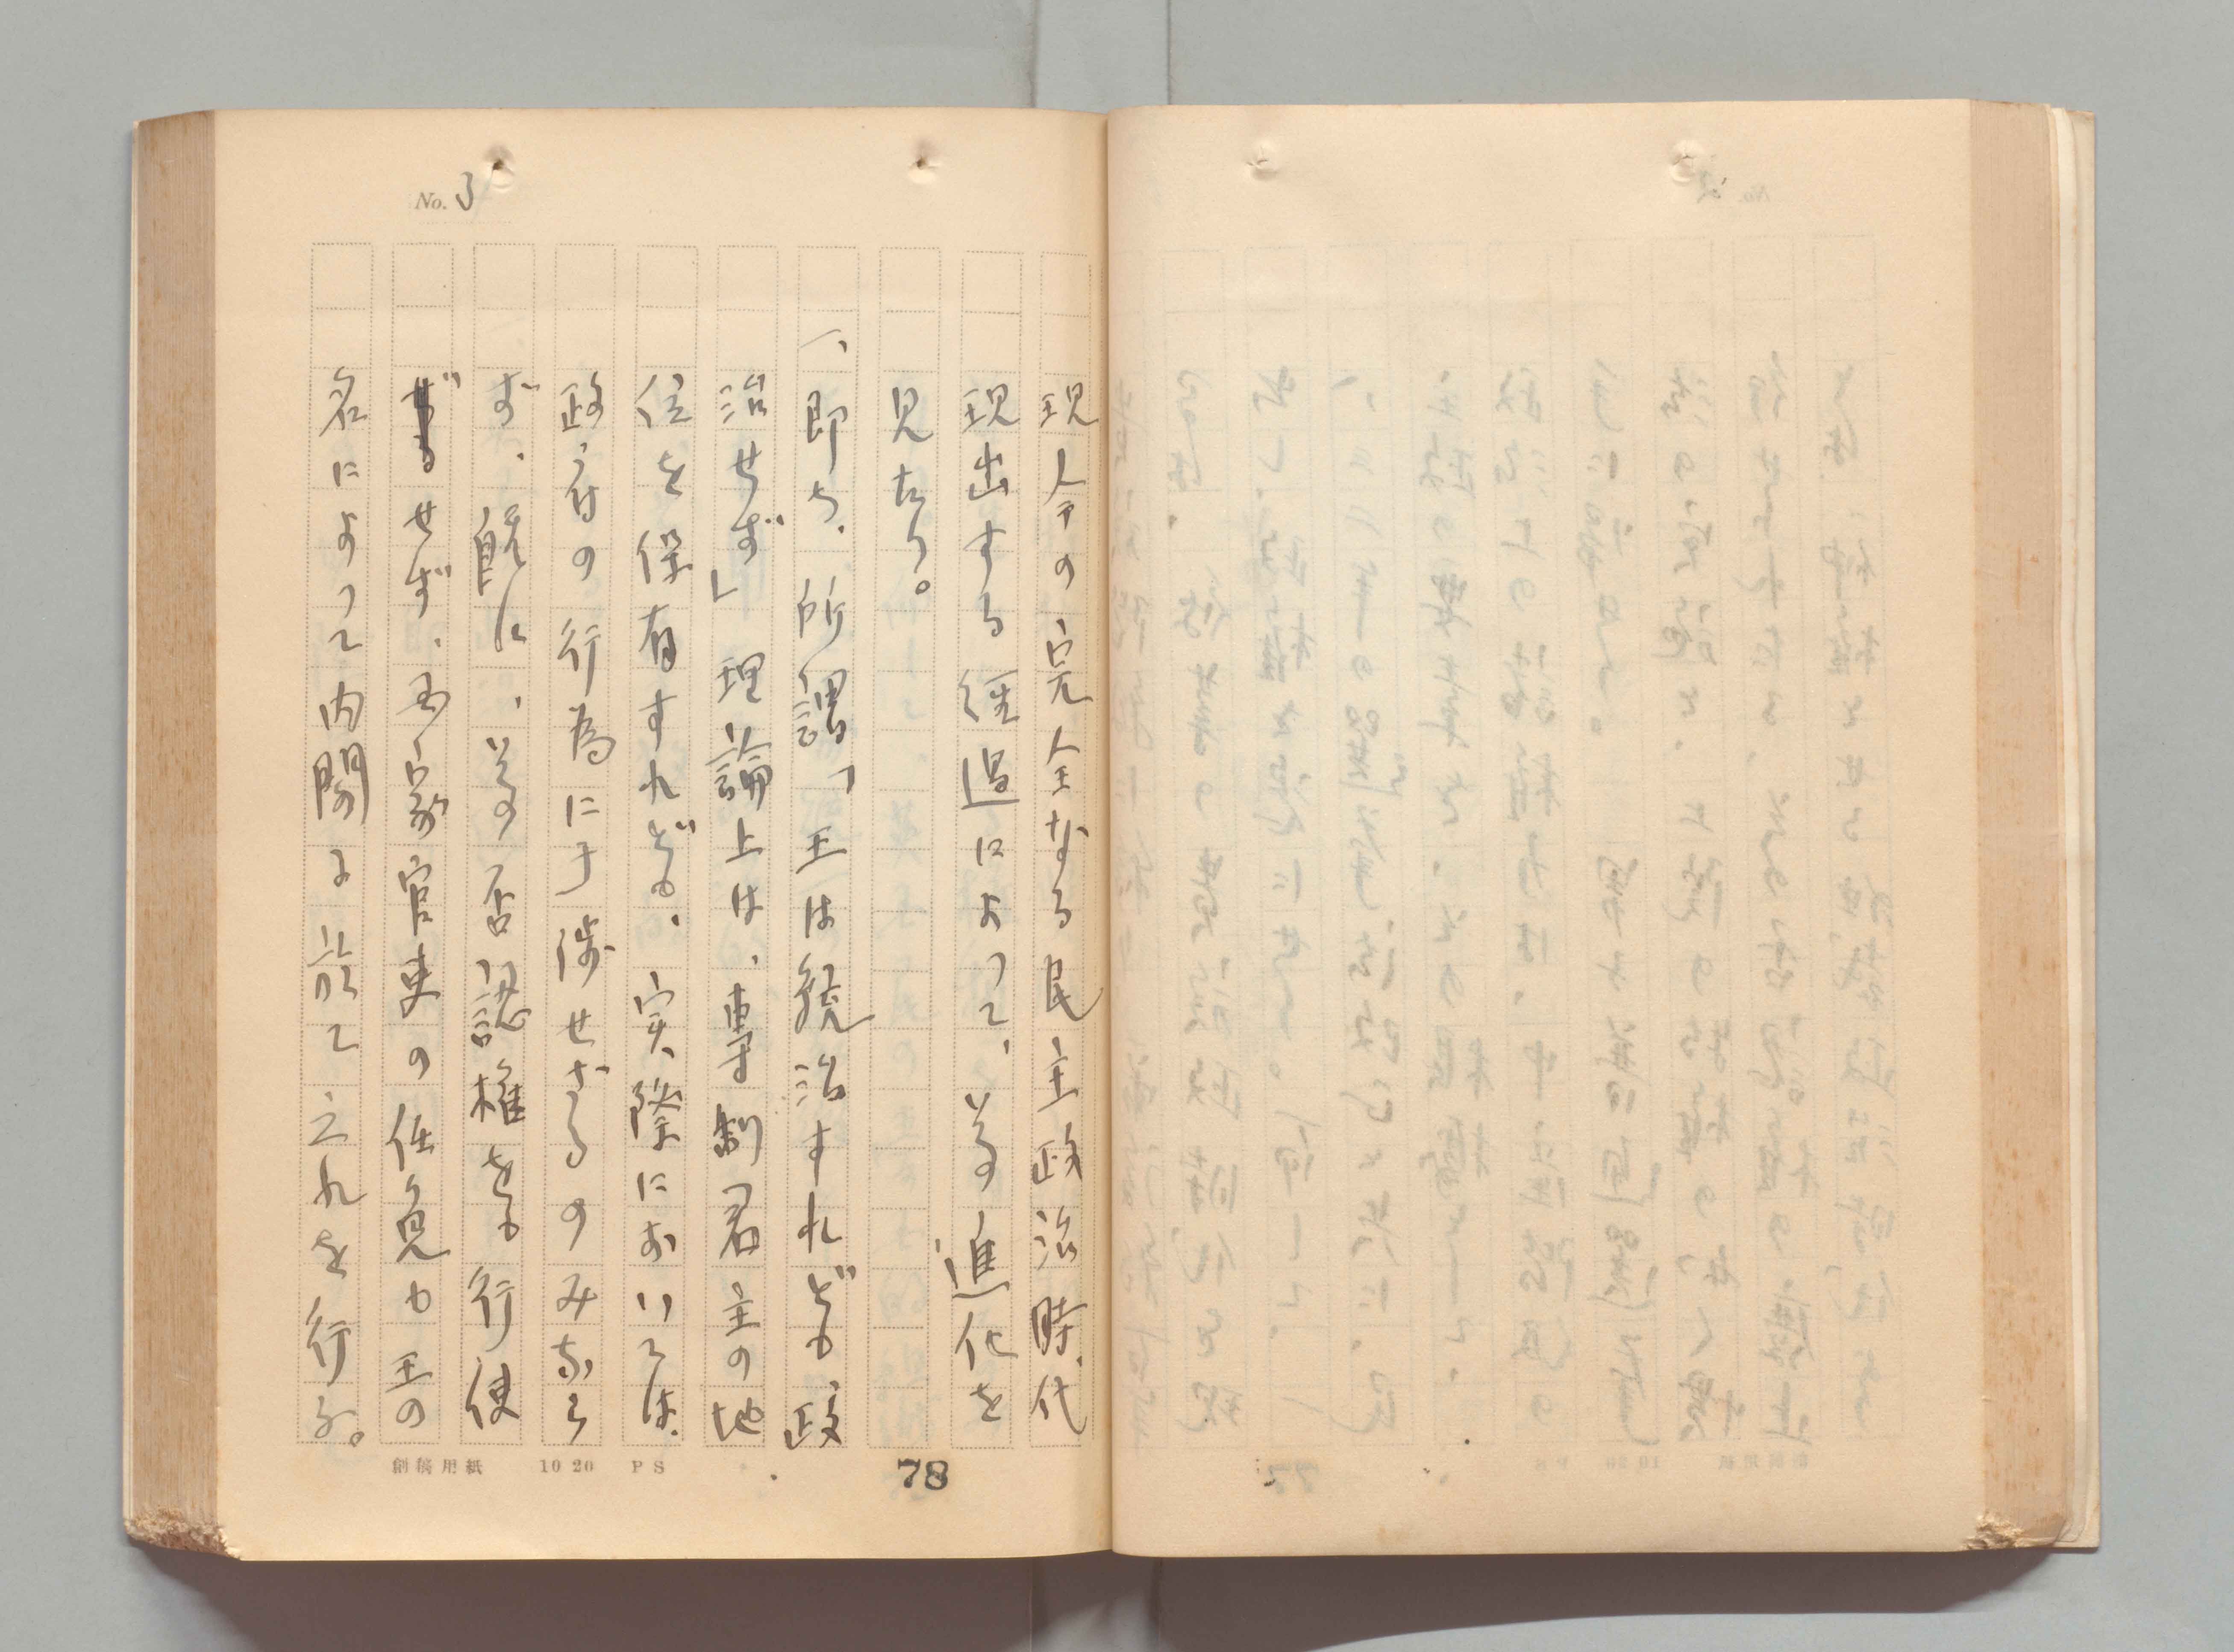 No. 3
現今の完全なる民主政治時代
現出する経過によって、其の進化を
見たり。
一、即ち、所謂「王は統治すれども政
治せず」理論上は、専制君主の地
位を保有すれども、実際においては、
政府の行為に干渉せざるのみなら
ず、既に、其の否認権をも行使
せず、国家官吏の任免も王の
名によって内閣に於て之れを行ふ。
創稿用紙 10 20 PS
78